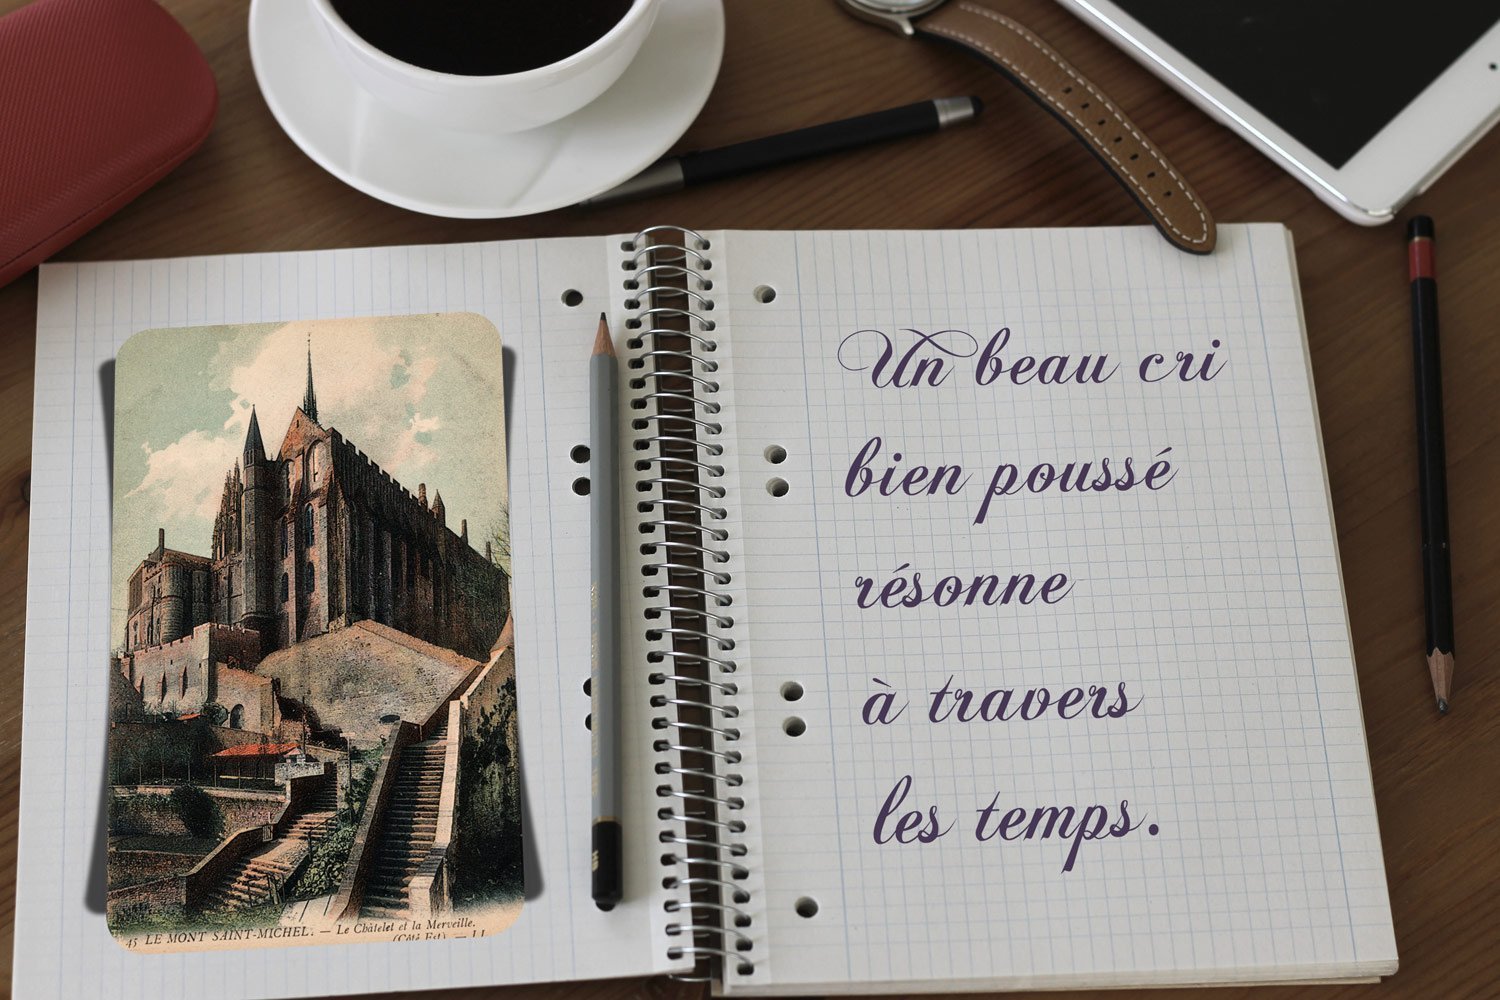 45 LE MONT SAINT-MICHEL. — Le Châtelet et la Merveille.
(Côté Est) — LL
Un beau cri
bien poussé
résonne
à travers
les temps.